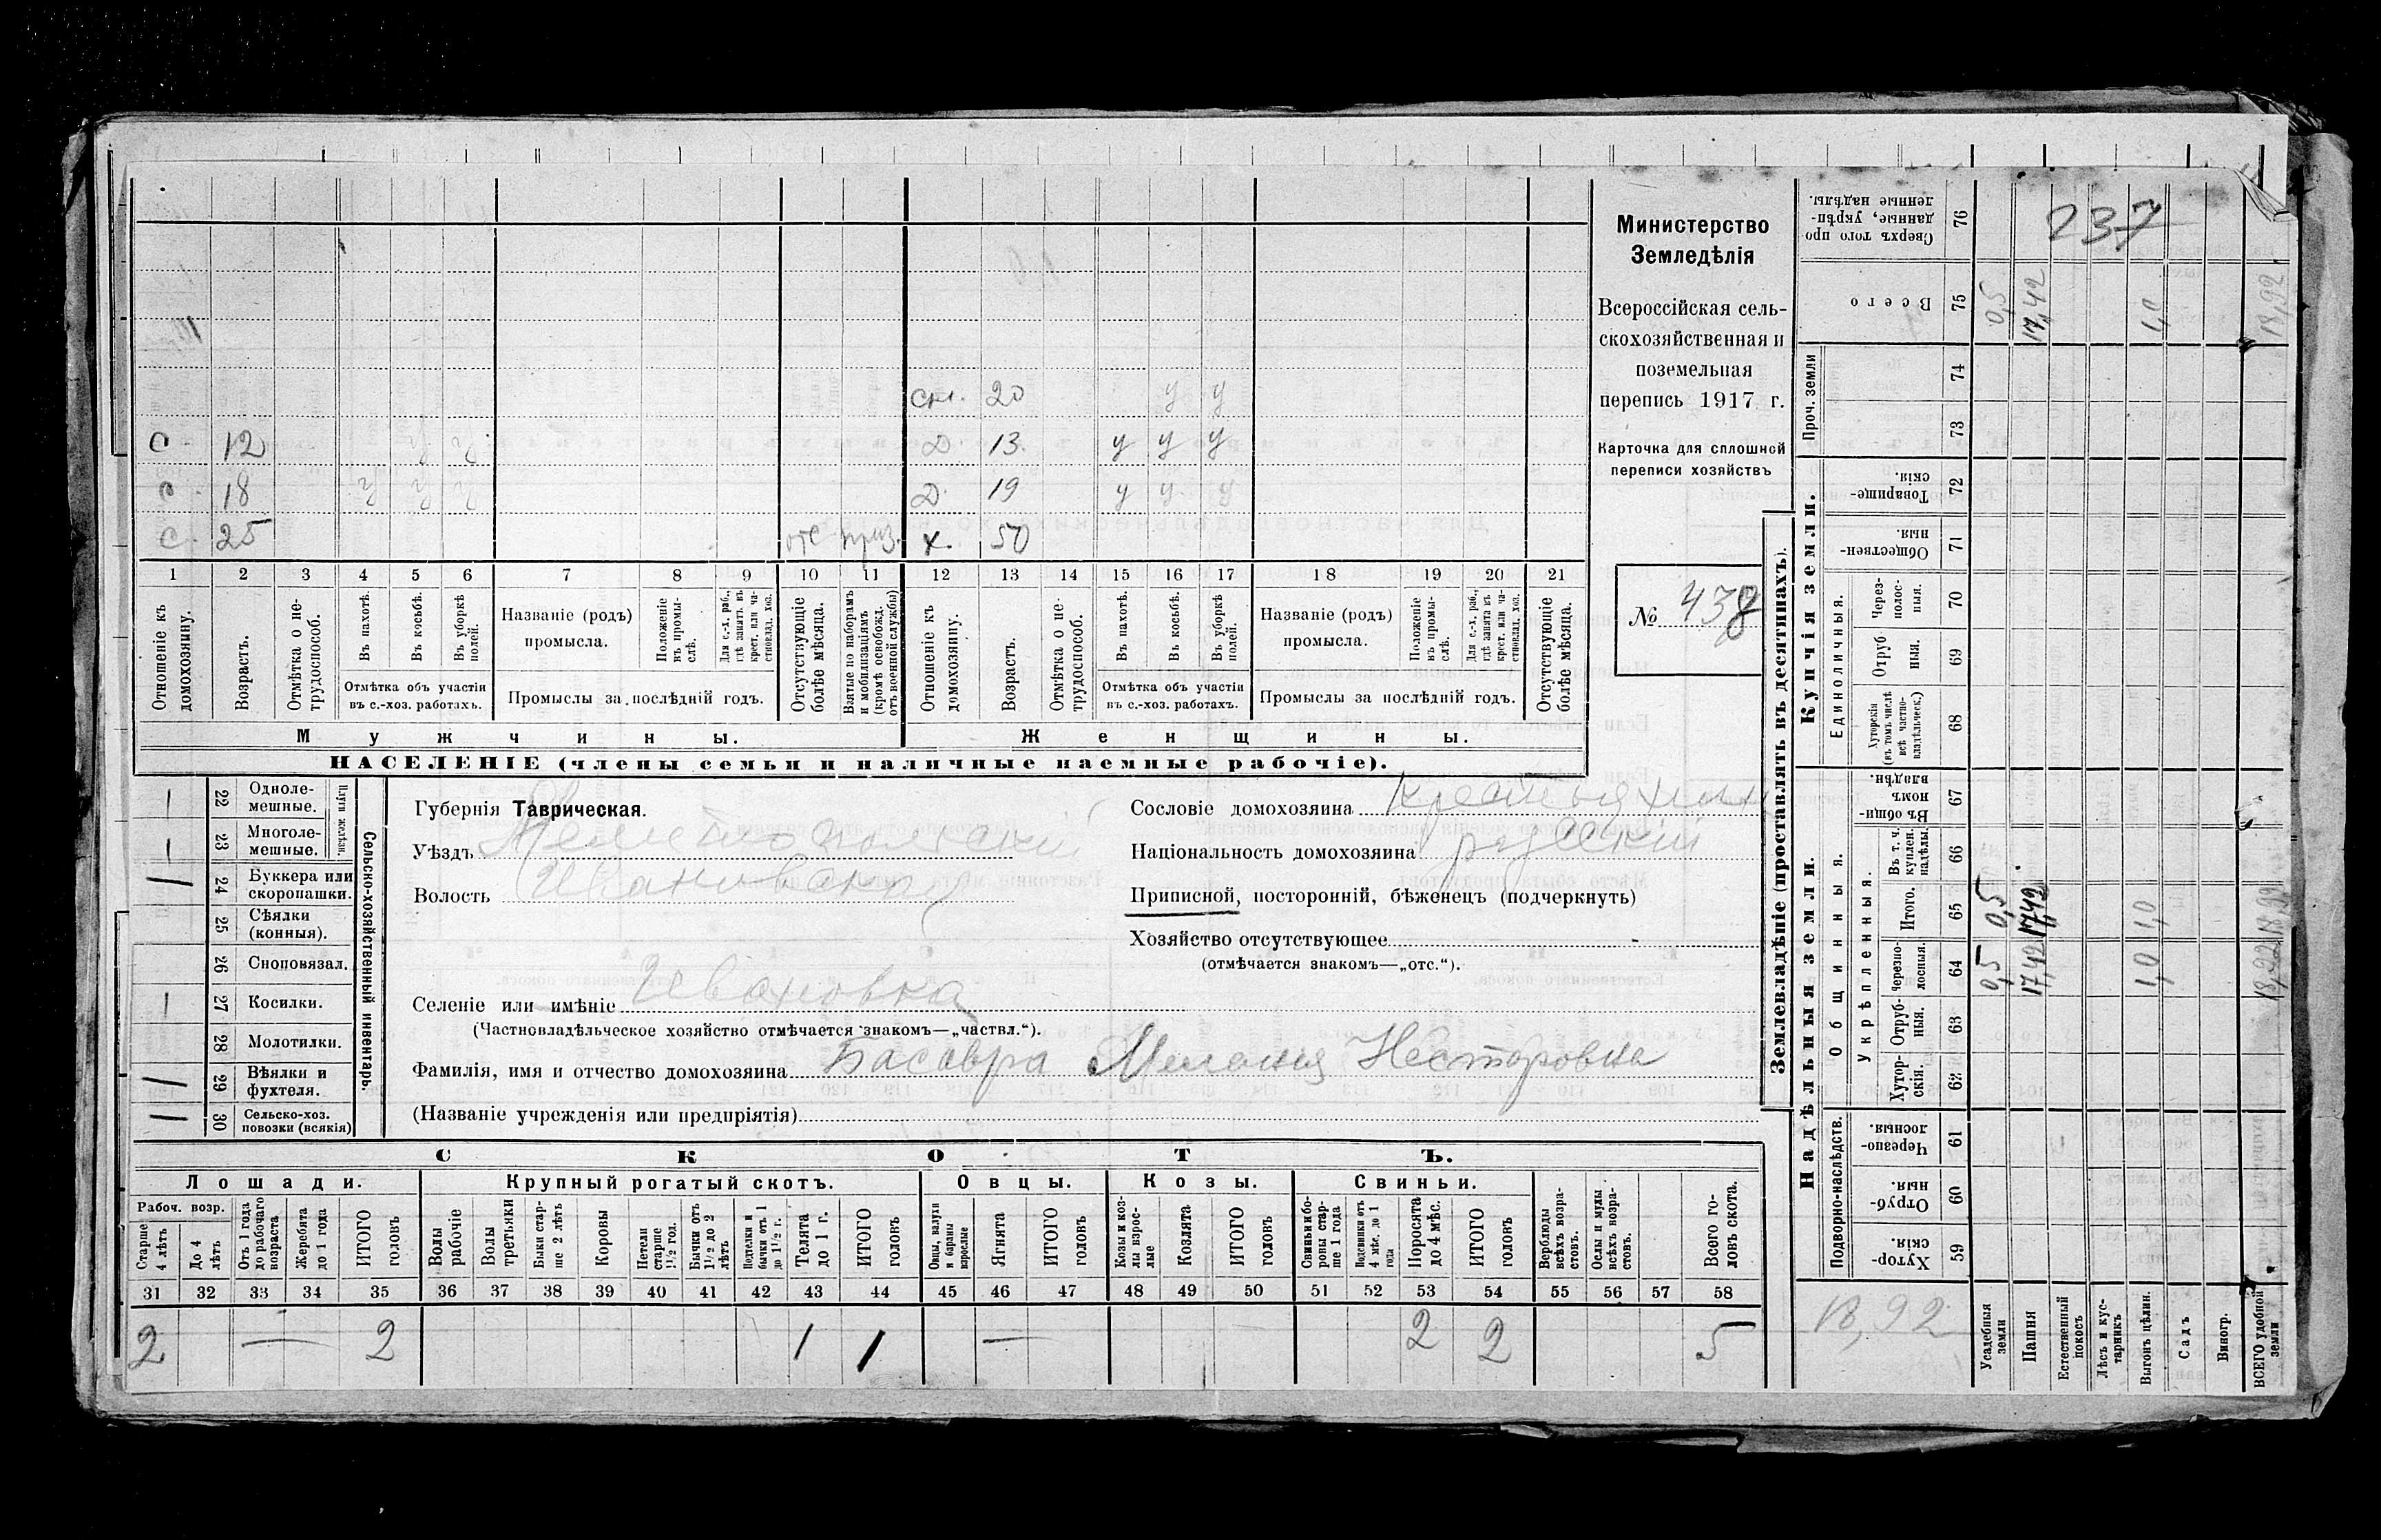 237
Министерство
Земледѣлія
Всероссійская сель-
скохозяйственная и
поземельная
перепись 1917 г.
Карточка для сплошной
переписи хозяйствъ
№ 438
сн. 20 у у
С 12 у у Д 13. у у у
С 18 у у у Д. 19 у у у
С. 25 отс приз. х. 50
1 2 3 4 5 6 7 8 9 10 11 12 13 14 15 16 17 18 19 20 21
Отношеніе къ домохозяину.
Возрастъ.
Отмѣтка о не-трудоспособ.
Въ пахотѣ.
Въ косьбѣ.
Въ уборкѣ полей.
Отмѣтка объ участіи въ с.-хоз. работахъ.
Названіе (родъ) промысла.
Положеніе въ промы-слѣ.
Для с.-х. раб., гдѣ занятъ въ крест. или ча-стновлад. хоз.
Промыслы за послѣдній годъ.
Отсутствующіе болѣе мѣсяца.
Взятые по наборамъ и мобилизаціямъ (кромѣ освобожд. отъ военной службы)
Отношеніе къ домохозяину.
Возрастъ.
Отмѣтка о не-трудоспособ.
Въ пахотѣ.
Въ косьбѣ.
Въ уборкѣ полей.
Отмѣтка объ участіи въ с.-хоз. работахъ.
Названіе (родъ) промысла.
Положеніе въ промы-слѣ.
Для с.-х. раб., гдѣ занятъ въ крест. или ча-стновлад. хоз.
Промыслы за послѣдній годъ.
Отсутствующіе болѣе мѣсяца.
Мужчины. Женщины.
НАСЕЛЕНІЕ (члены семьи и наличные наемные рабочіе).
Сельско-хозяйственный инвентарь.
Плуги желѣзн.
1 22 Одноле-мешные.
1 23 Многоле-мешные.
1 24 Буккера или скоропашки.
25 Сѣялки (конныя).
26 Сноповязал.
1 27 Косилки.
28 Молотилки.
1 29 Вѣялки и фухтеля.
1 30 Сельско-хоз. повозки (всякія)
Губернія Таврическая.
Уѣздъ Мелитопольскій
Волость Ивановская
Сословіе домохозяина крестьянин
Національность домохозяина русскій
Приписной, посторонній, бѣженецъ (подчеркнуть)
Хозяйство отсутствующее
(отмѣчается знакомъ—„отс.“).
Селеніе или имѣніе Ивановка
(Частновладѣльческое хозяйство отмѣчается знакомъ—„частвл.“).
Фамилія, имя и отчество домохозяина Басавра Мелания Несторовна
(Названіе учрежденія или предпріятія)
СКОТЪ.
Лошади. Крупный рогатый скотъ. Овцы. Козы. Свиньи.
Рабоч. возр.
Старше 4 лѣтъ
До 4 лѣтъ
Отъ 1 года до рабочаго возраста
Жеребята до 1 года
ИТОГО головъ
Волы рабочіе
Волы третьяки
Быки стар-ше 2 лѣтъ
Коровы
Нетели старше 1½ год.
Бычки отъ 1½ до 2 лѣтъ
Подтелки и бычки отъ 1 до 1½ г.
Телята до 1 г.
ИТОГО головъ
Овцы, валухи и бараны взрослые
Ягнята
ИТОГО головъ
Козы и коз-лы взрос-лые
Козлята
ИТОГО головъ
Свиньи и бо-ровы стар-ше 1 года
Подсвинки отъ 4 мѣс. до 1 года
Поросята до 4 мѣс.
ИТОГО головъ
Верблюды всѣхъ возра-стовъ.
Ослы и мулы всѣхъ возра-стовъ.
Всего го-ловъ скота.
31 32 33 34 35 36 37 38 39 40 41 42 43 44 45 46 47 48 49 50 51 52 53 54 55 56 57 58
2 — 2 1 1 — 2 2 5
Землевладѣніе (проставлять въ десятинахъ).
Надѣльныя земли. Купчія земли. Проч. земли
Подворно-наслѣдств.
Общинныя.
Укрѣпленныя.
Единоличныя.
Сверхъ того про-данные, укрѣп-ленные надѣлы. 76
Всего 75 0,5 17,42 1,0 18,92
74
73
Товарище-скія. 72
Обществен-ныя. 71
Через-полос-ныя. 70
Отруб-ныя. 69
Хуторскія (въ томъ числѣ всѣ частно-владѣльческ.) 68
Въ общин-номъ владѣн. 67
Въ т. ч. куплен. надѣлы. 66
Итого. 65 0,5 17,42 1,0 18,92
Черезпо-лосныя. 64 0,5 17,42 1,0 18,92
Отруб-ныя. 63
Хутор-скія. 62
Черезпо-лосныя. 61
Отруб-ныя. 60
Хутор-скія. 59
18,92
Усадебныя земли
Пашня
Естественный покосъ
Лѣсъ и кус-тарникъ
Выгонъ цѣлин.
Садъ
Виногр.
ВСЕГО удобной земли